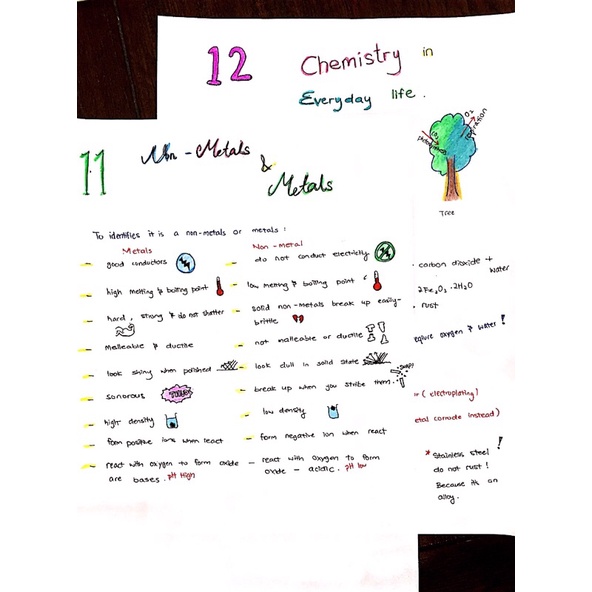 12 Chemistry in
Everyday life.
11 Non-Metals
&
Metals
Tree
To identifies it is a non-metals or metals :
Metals
- good conductors
- high melting & boiling point
- hard, strong & do not shatter
- malleable & ductile
- look shiny when polished
- sonorous
- high density
- form positive ions when react
- react with oxygen to form oxide
are bases. pH High
Non-metal
- do not conduct electricity
- low melting & boiling point
- solid non-metals break up easily-
brittle
- not malleable or ductile
- look dull in solid state
snap!
- break up when you stribe them.
- low density
- form negative ion when react
- react with oxygen to form
oxide - acidic. pH low
carbon dioxide +
water
2Fe₂O₃·2H₂O
rust
equire oxygen & water !
(electroplating)
etal corrode instead)
* Stainless steel !
do not rust !
Because it's an
alloy.